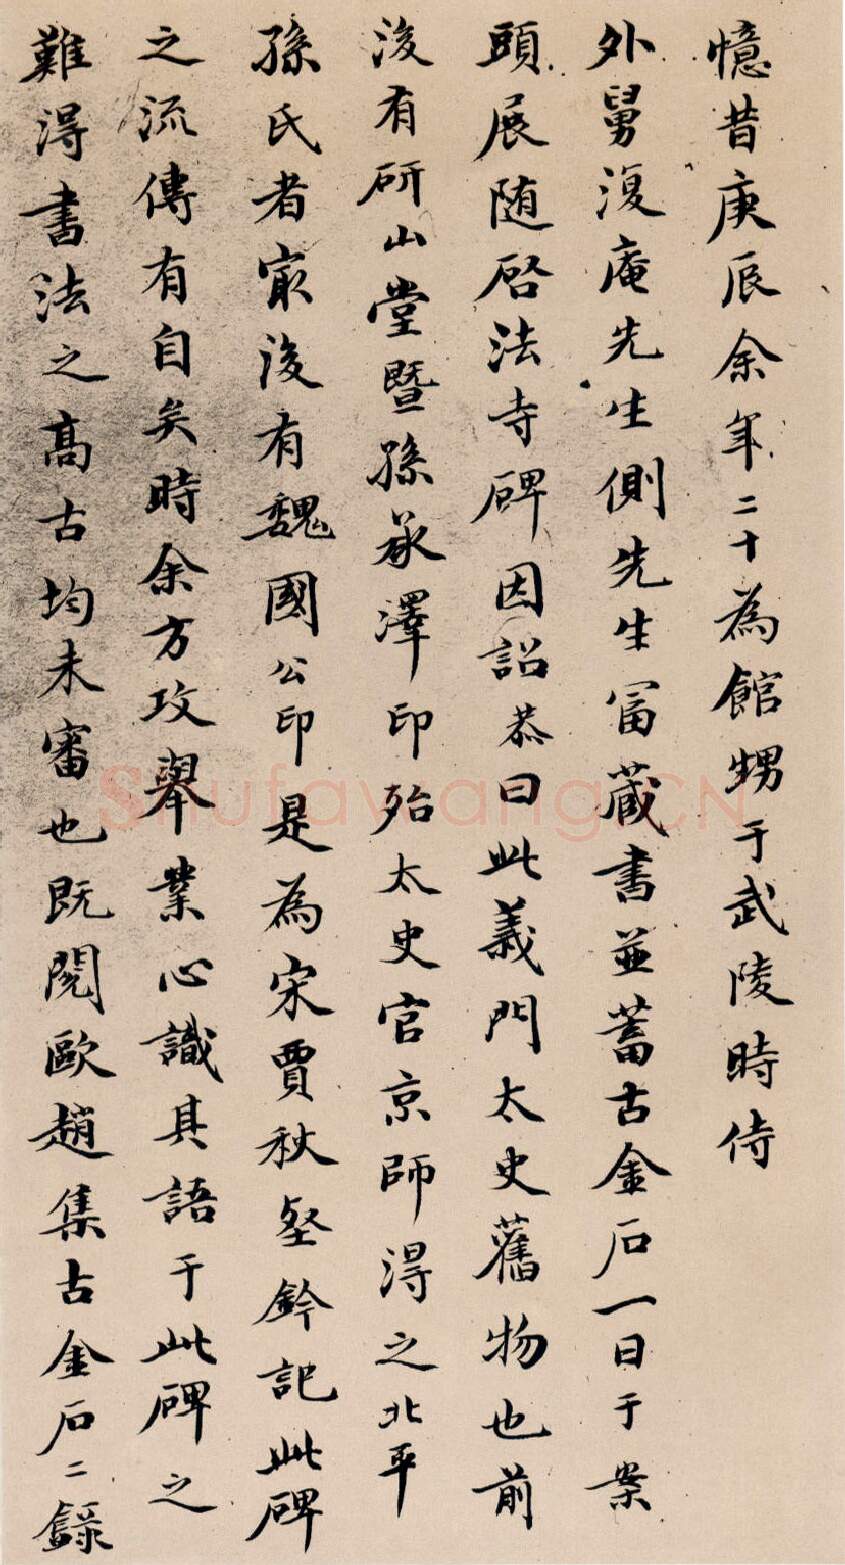 憶昔庚辰余年二十為館甥于武陵時侍
外舅復庵先生側先生富蔵書並蓄古金石一日于案
頭展随啓法寺碑因詔恭曰此義門太史舊物也前
後有研山堂暨孫承澤印殆太史官京師得之北平
孫氏者㝡後有魏國公印是為宋賈秋壑鈐記此碑
之流傳有自矣時余方攻舉業心識其語于此碑之
難得書法之髙古均未審也既閱歐趙集古金石二錄
ShufawangCN